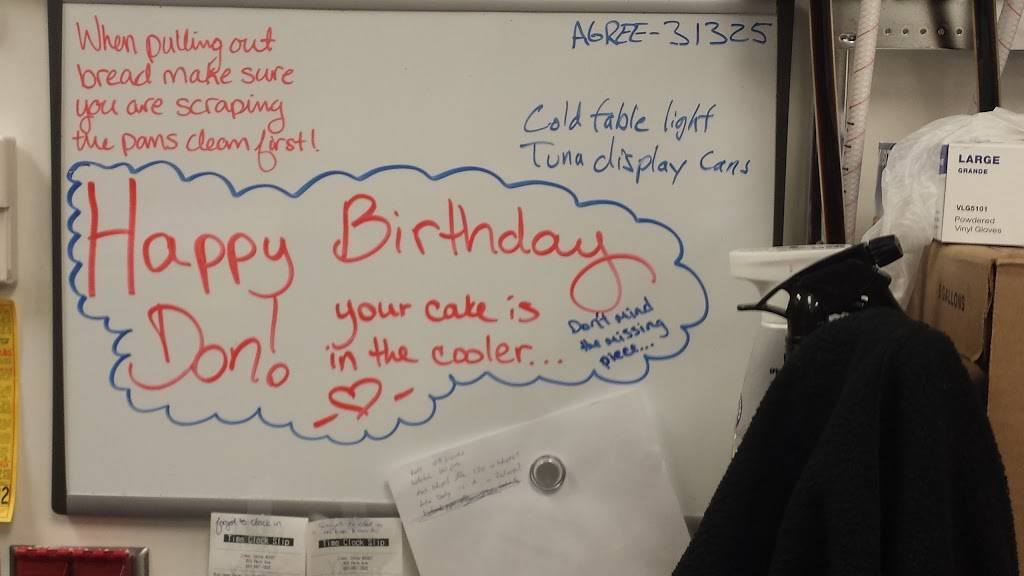 When pulling out
bread make sure
you are scraping
the pans clean first!
AGREE-31325
Cold table light
Tuna display cans
Happy Birthday
Don!
your cake is
in the cooler...
Don't mind
the missing
piece...
LARGE
GRANDE
VLG5101
Powdered
Vinyl Gloves
GALLONS
forgot to clock in
Time Clock Slip
Time Clock Slip
2